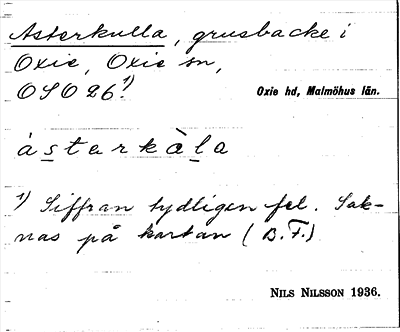 Asterkulla, grusbacke i
Oxie, Oxie sn,
OSO 26.¹⁾
Oxie hd, Malmöhus län.
ásterkàla
¹⁾ Siffran tydligen fel. Sak-
nas på kartan (B.F.)
NILS NILSSON 1936.